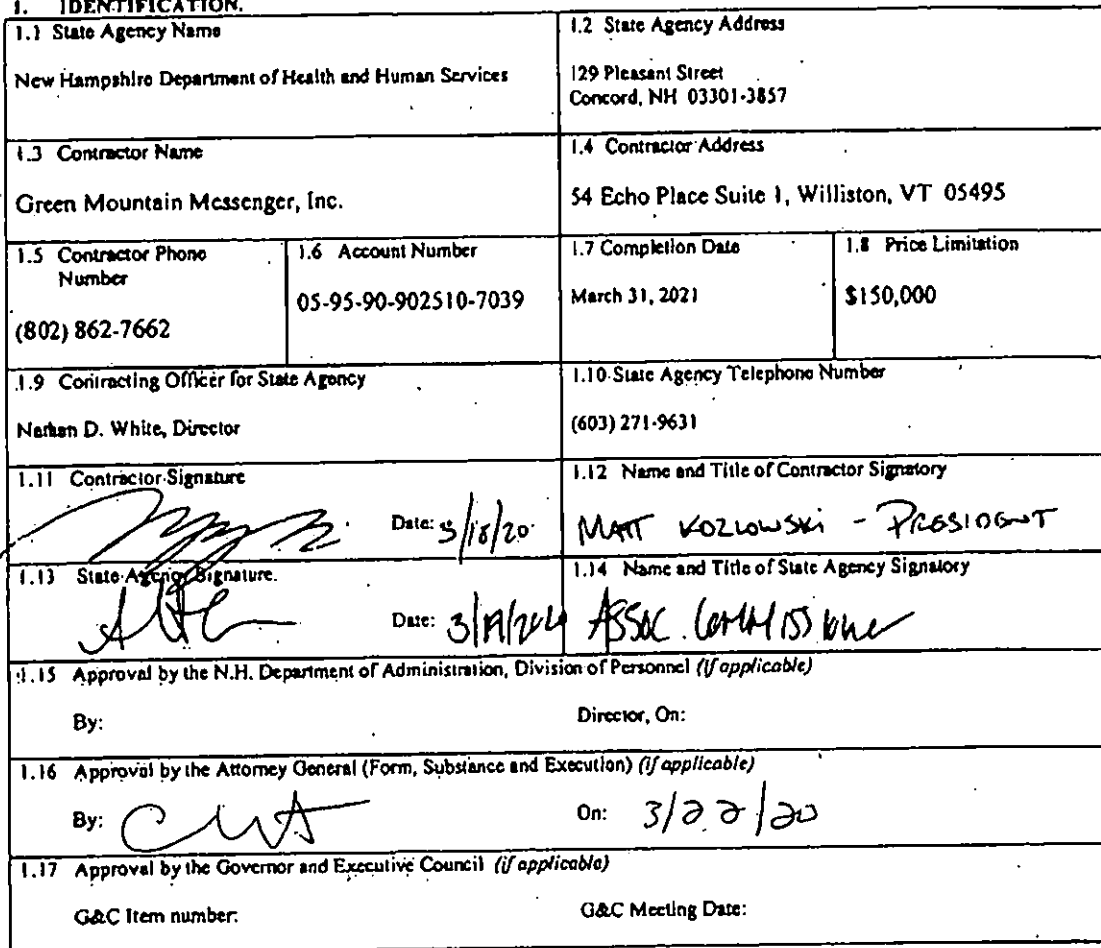 1. IDENTIFICATION.
1.1 State Agency Name
New Hampshire Department of Health and Human Services
1.2 State Agency Address
129 Pleasant Street
Concord, NH 03301-3857
1.3 Contractor Name
Green Mountain Messenger, Inc.
1.4 Contractor Address
54 Echo Place Suite 1, Williston, VT 05495
1.5 Contractor Phone
Number
(802) 862-7662
1.6 Account Number
05-95-90-902510-7039
1.7 Completion Date
March 31, 2021
1.8 Price Limitation
$150,000
1.9 Contracting Officer for State Agency
Nathan D. White, Director
1.10 State Agency Telephone Number
(603) 271-9631
1.11 Contractor Signature
Date: 3/18/20
1.12 Name and Title of Contractor Signatory
MATT KOZLOWSKI - PRESIDENT
1.13 State Agency Signature.
Date: 3/19/
1.14 Name and Title of State Agency Signatory
ASSOC. Commissioner
1.15 Approval by the N.H. Department of Administration, Division of Personnel (if applicable)
By: Director, On:
1.16 Approval by the Attorney General (Form, Substance and Execution) (if applicable)
By: On: 3/22/20
1.17 Approval by the Governor and Executive Council (if applicable)
G&C Item number: G&C Meeting Date: